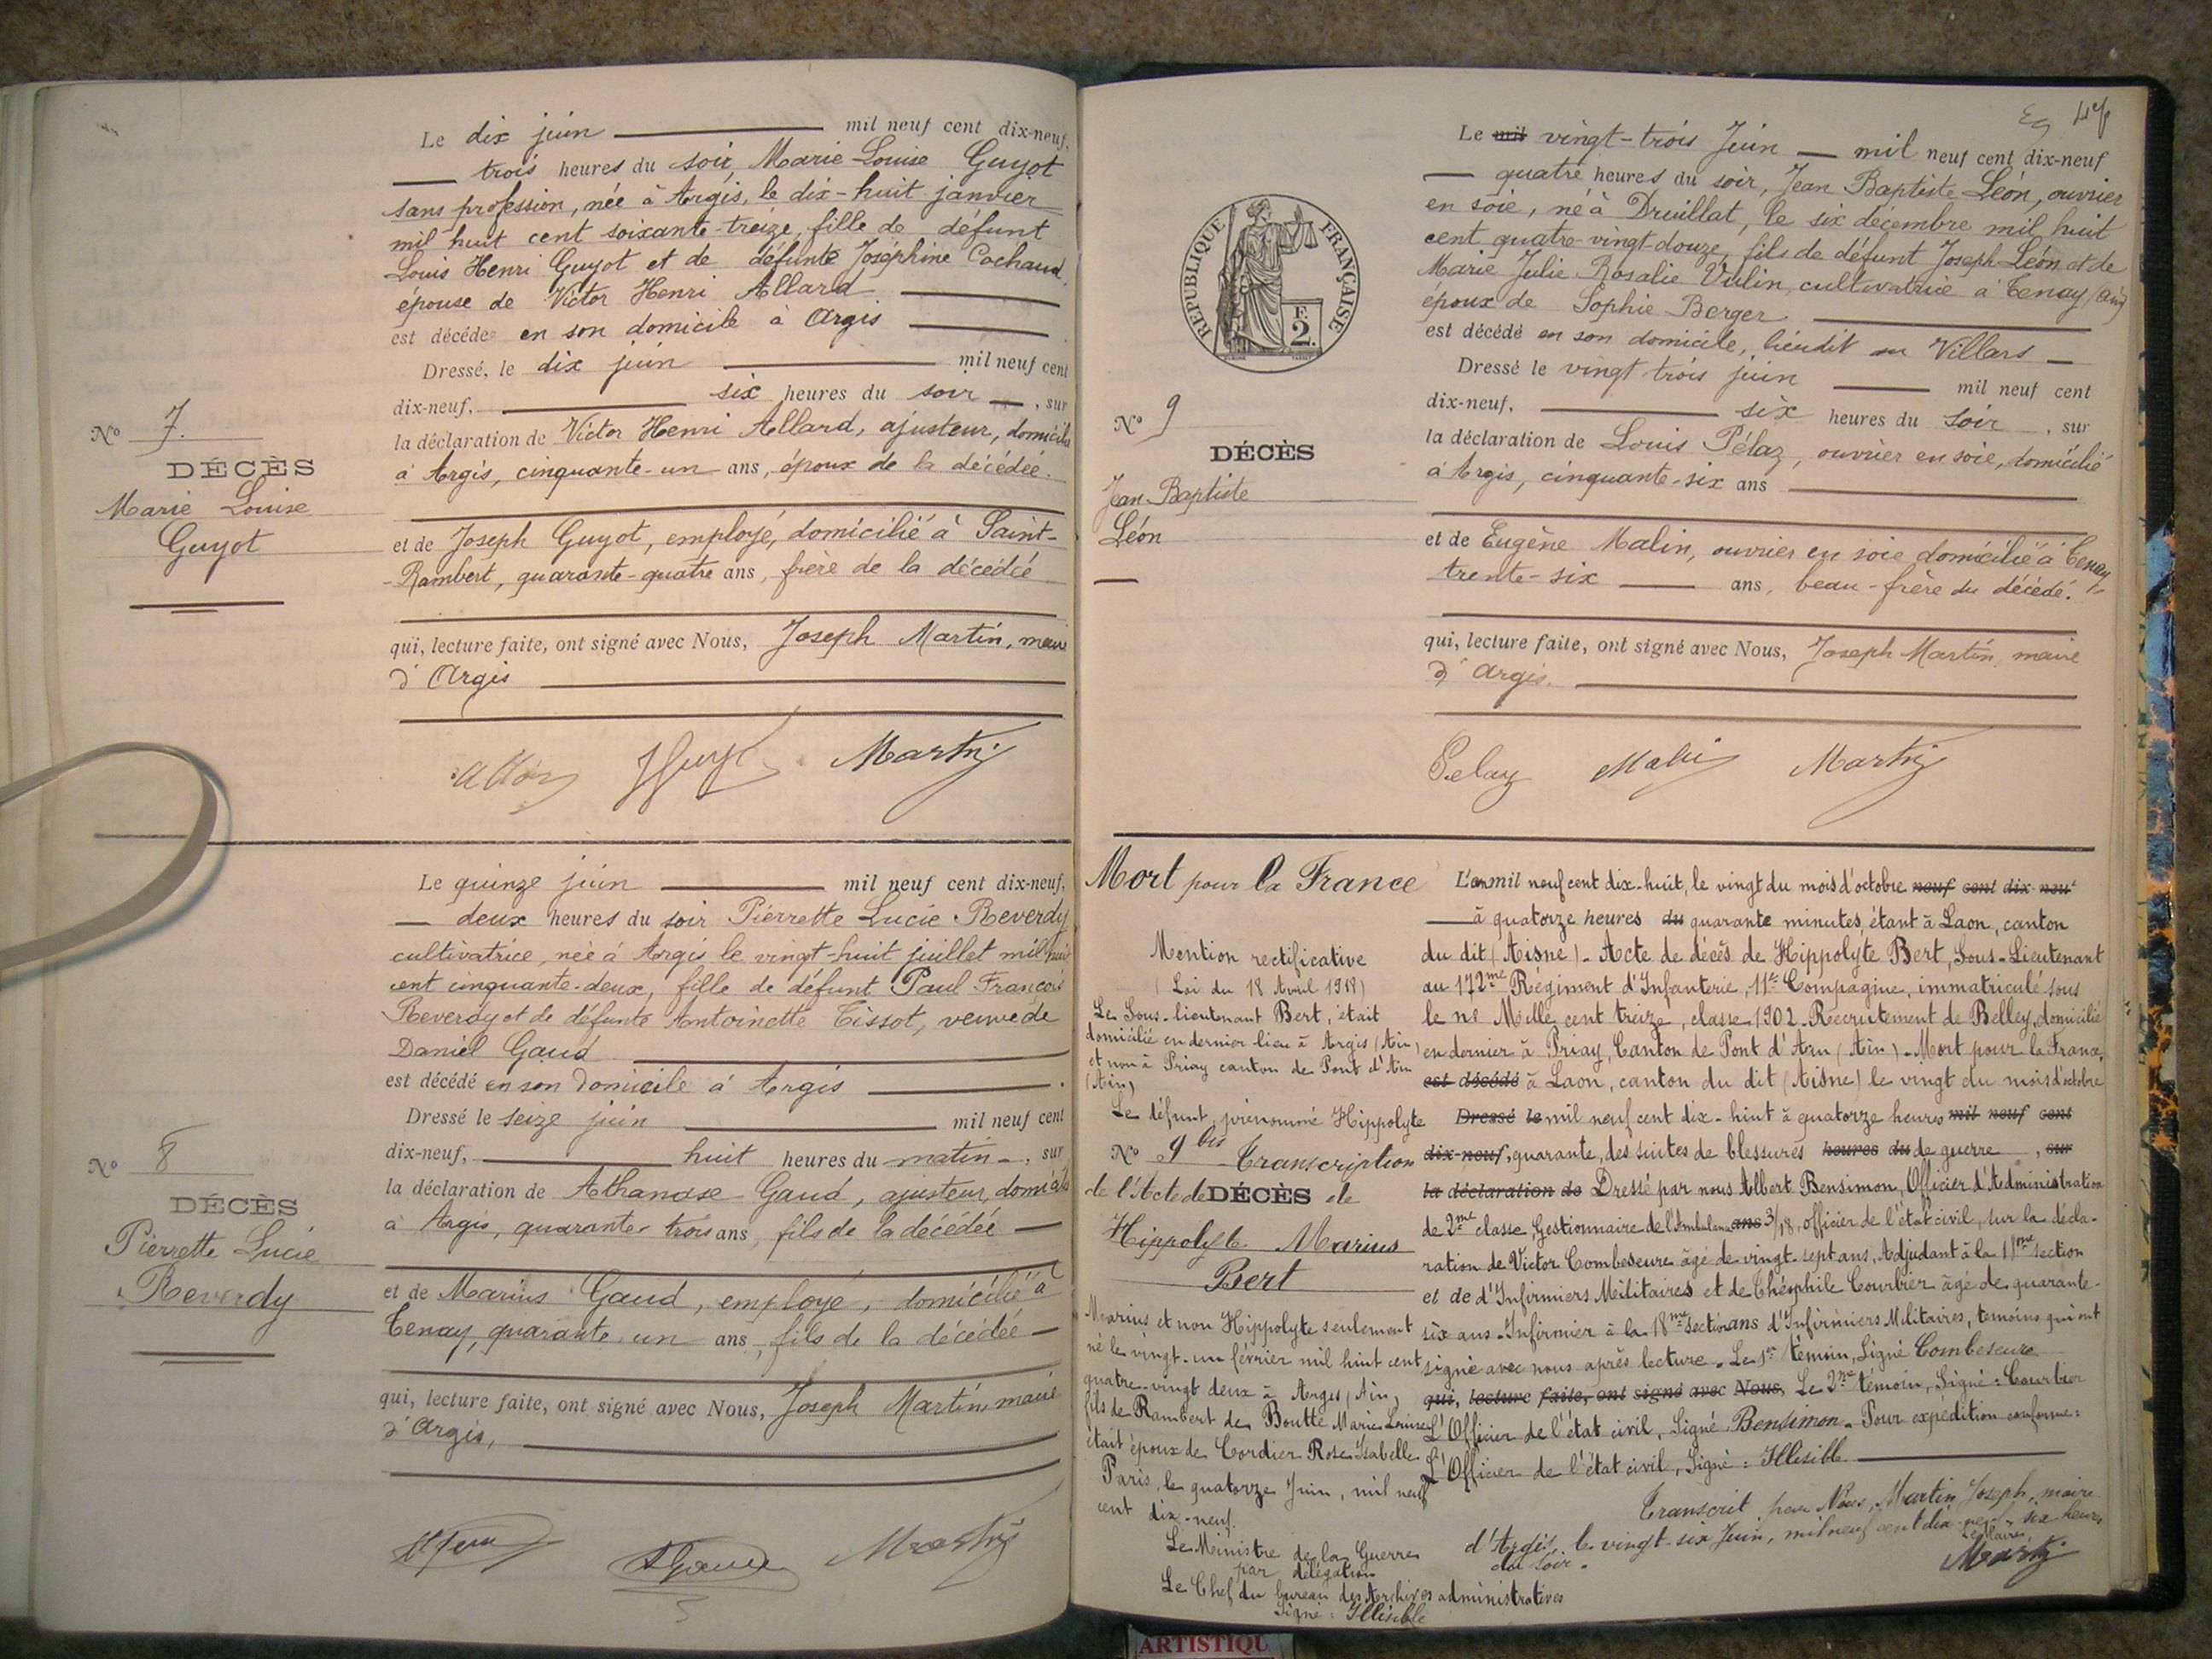 Le dix juin mil neuf cent dix-neuf,
trois heures du soir, Marie-Louise Guyot
sans profession, née à Argis, le dix-huit janvier
mil huit cent soixante-treize, fille de défunt
Louis Henri Guyot et de défunte Joséphine Cochaud,
épouse de Victor Henri Allard
est décédée en son domicile à Argis
Dressé, le dix juin mil neuf cent
dix-neuf, six heures du soir, sur
la déclaration de Victor Henri Allard, ajusteur, domicilié
à Argis, cinquante-un ans, époux de la décédée.
et de Joseph Guyot, employé, domicilié à Saint-
-Rambert, quarante-quatre ans, frère de la décédée
qui, lecture faite, ont signé avec Nous, Joseph Martin, maire
d'Argis
N° 7.
DÉCÈS
Marie Louise
Guyot
Martin
Le quinze juin mil neuf cent dix-neuf,
deux heures du soir Pierrette Lucie Reverdy
cultivatrice, née à Argis le vingt-huit juillet mil huit
cent cinquante-deux, fille de défunt Paul François
Reverdy et de défunte Antoinette Tissot, veuve de
Daniel Gaud
est décédé en son domicile à Argis
Dressé le seize juin mil neuf cent
dix-neuf, huit heures du matin, sur
la déclaration de Athanase Gaud, ajusteur, domicilié
à Argis, quarante-trois ans, fils de la décédée
et de Marius Gaud, employé, domicilié à
Tenay, quarante-un ans, fils de la décédée
qui, lecture faite, ont signé avec Nous, Joseph Martin, maire
d'Argis,
N° 8
DÉCÈS
Pierrette Lucie
Reverdy
Martin
47
Le mil vingt-trois Juin mil neuf cent dix-neuf
quatre heures du soir, Jean Baptiste Léon, ouvrier
en soie, né à Druillat, le six décembre mil huit
cent quatre-vingt-douze, fils de défunt Joseph Léon et de
Marie Julie Rosalie Vulin, cultivatrice à Tenay (Ain)
époux de Sophie Berger
est décédé en son domicile, lieudit au Villars
Dressé le vingt trois juin mil neuf cent
dix-neuf, six heures du soir, sur
la déclaration de Louis Pélaz, ouvrier en soie, domicilié
à Argis, cinquante-six ans
et de Eugène Malin, ouvrier en soie domicilié à Tenay
trente-six ans, beau-frère du décédé.
qui, lecture faite, ont signé avec Nous, Joseph Martin, maire
d'Argis.
RÉPUBLIQUE FRANÇAISE
F.
2.
N° 9
DÉCÈS
Jean-Baptiste
Léon
Pelaz Malin Martin
Mort pour la France
Mention rectificative
(Loi du 18 Avril 1918)
Le Sous-lieutenant Bert, était
domicilié en dernier lieu à Argis (Ain)
et non à Priay canton de Pont d'Ain
(Ain)
Le défunt, prénommé Hippolyte
N° 9 bis Transcription
de l'Acte de DÉCÈS de
Hippolyte Marius
Bert
Marius et non Hippolyte seulement
né le vingt-un février mil huit cent
quatre-vingt deux à Argis (Ain)
fils de Rambert de Boutte Marie Louise
était époux de Cordier Rose Isabelle
Paris, le quatorze Juin, mil neuf
cent dix-neuf.
Le Ministre de la Guerre
par délégation
Le Chef du bureau des Archives administratives
Signé : Illisible
L'an mil neuf cent dix-huit, le vingt du mois d'octobre neuf cent dix-neuf
à quatorze heures du quarante minutes, étant à Laon, canton
du dit (Aisne). Acte de décès de Hippolyte Bert, Sous-Lieutenant
au 172me Régiment d'Infanterie, 11e Compagnie, immatriculé sous
le no Mille cent treize, classe 1902. Recrutement de Belley, domicilié
en dernier à Priay, Canton de Pont d'Ain (Ain). Mort pour la France,
est décédé à Laon, canton du dit (Aisne) le vingt du mois d'octobre
Dressé le mil neuf cent dix-huit à quatorze heures mil neuf cent
dix-neuf, quarante, des suites de blessures heures du de guerre, sur
la déclaration de Dressé par nous Albert Bensimon, Officier d'Administration
de 2me classe, Gestionnaire de l'Ambulance ans 3/18, officier de l'état civil, sur la décla-
ration de Victor Combescure âgé de vingt-sept ans, Adjudant à la 11me section
et de d'Infirmiers Militaires et de Théophile Courbier âgé de quarante-
six ans. Infirmier à la 18me section ans d'Infirmiers Militaires, témoins qui ont
signé avec nous après lecture. Le 1er témoin, Signé Combescure
qui, lecture faite, ont signé avec Nous, Le 2me témoin, Signé : Courbier
L'Officier de l'état civil, Signé Bensimon. Pour expédition conforme :
L'Officier de l'état civil, Signé : Illisible
Transcrit par Nous, Martin Joseph, maire
d'Argis, le vingt-six Juin, mil neuf cent dix-neuf, six heures
du soir.
Le Maire,
Martin
ARTISTIQU